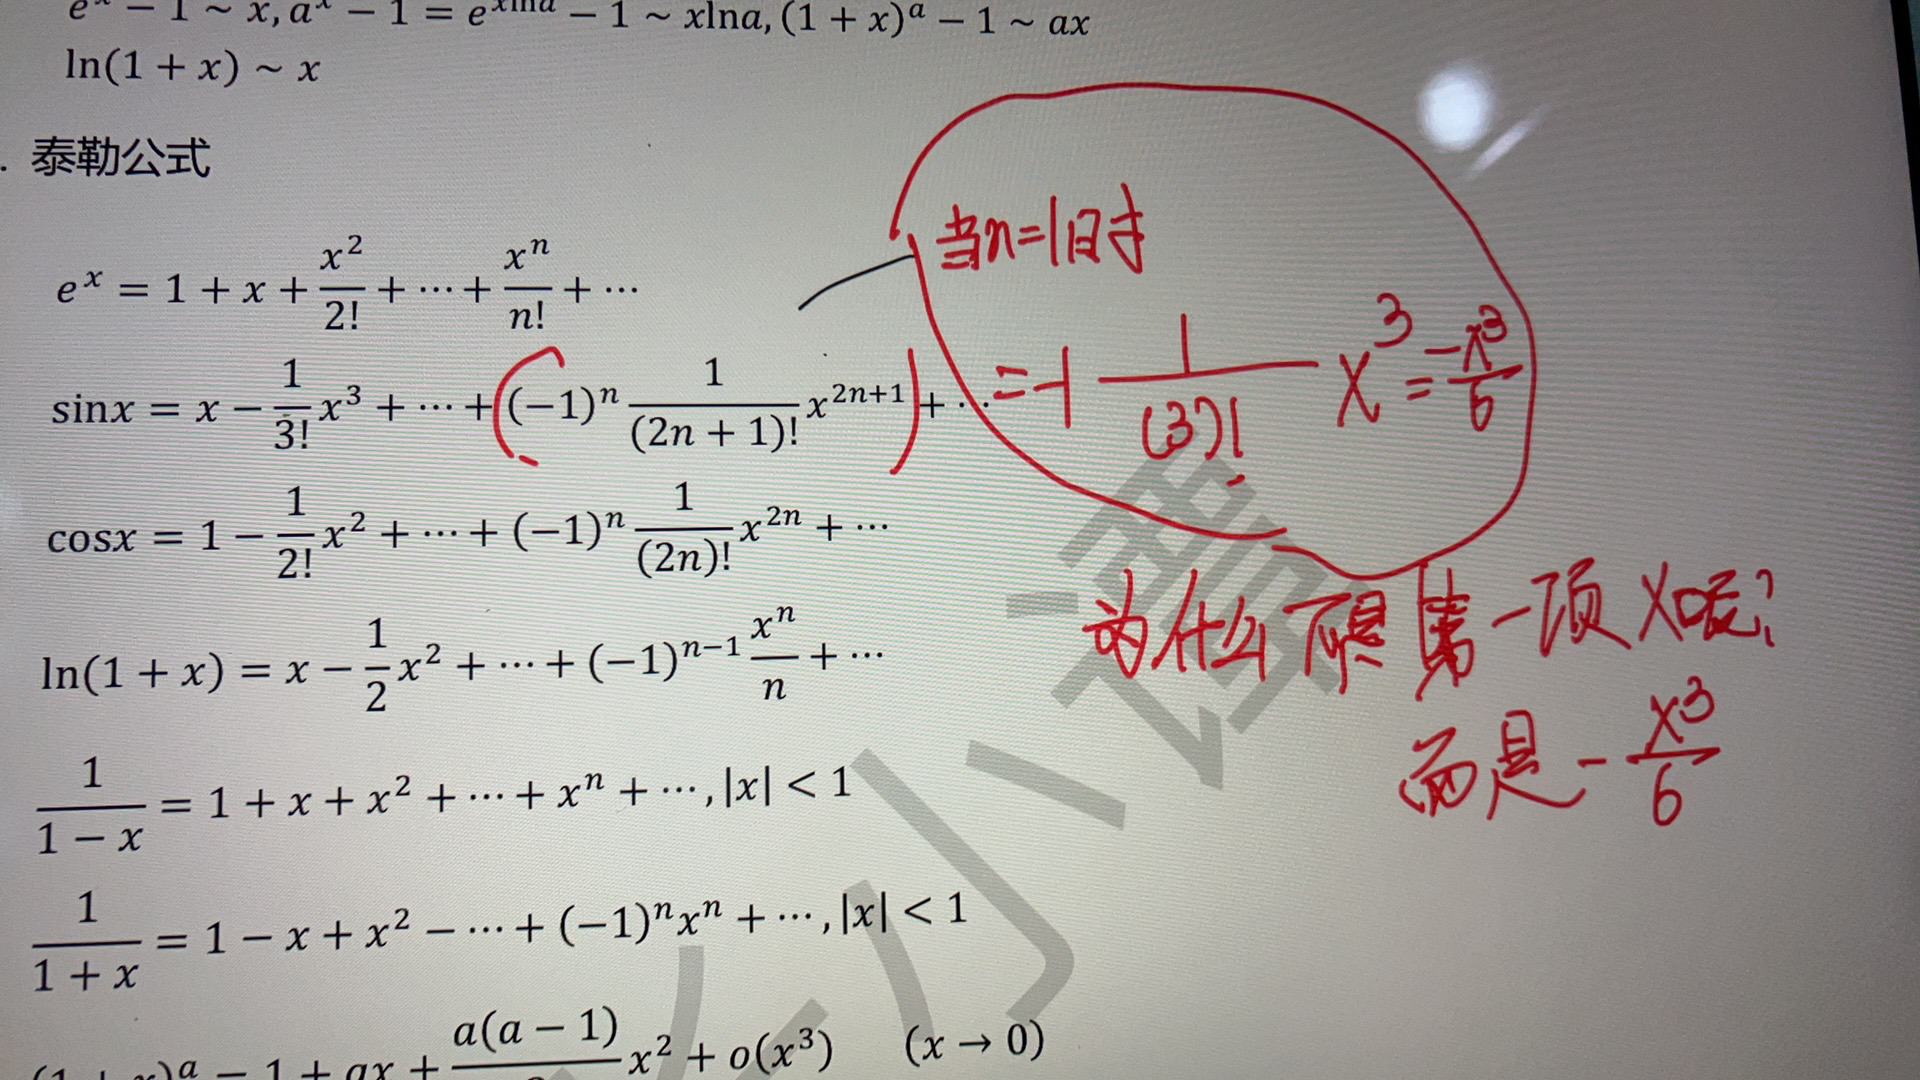 e^x − 1 ~ x, a^x − 1 = e^{xlna} − 1 ~ xlna, (1 + x)^a − 1 ~ ax
ln(1 + x) ~ x
. 泰勒公式
当n=1时
e^x = 1 + x + x^2/2! + ⋯ + x^n/n! + ⋯
sinx = x − 1/3! x^3 + ⋯ + (−1)^n 1/(2n + 1)! x^{2n+1} + ⋯
= -1 1/(3)! x^3 = -x^3/6
cosx = 1 − 1/2! x^2 + ⋯ + (−1)^n 1/(2n)! x^{2n} + ⋯
为什么不是第一项x呢?
ln(1 + x) = x − 1/2 x^2 + ⋯ + (−1)^{n−1} x^n/n + ⋯
而是 - x^3/6
1/(1 − x) = 1 + x + x^2 + ⋯ + x^n + ⋯, |x| < 1
1/(1 + x) = 1 − x + x^2 − ⋯ + (−1)^n x^n + ⋯, |x| < 1
(1 + x)^a − 1 + ax + a(a − 1)/ x^2 + o(x^3) (x → 0)
小谭